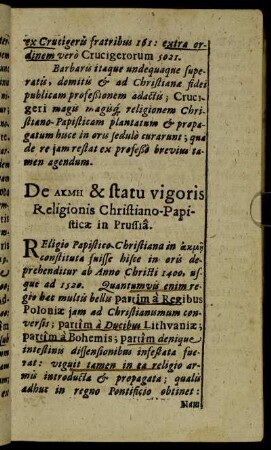 ex Crucigeris fratribus 161: extra or-
dinem verò Crucigerorum 5021.
Barbaris itaque undequaque supe-
ratis, domitis & ad Christianæ fidei
publicam professionem adactis; Cruci-
geri magis magisq; religionem Chri-
stiano-Papisticam plantatum & propa-
gatum husce in oris sedulò curarunt; qua
de re jam restat ex professo brevius ta-
men agendum.
De ακμη & statu vigoris
Religionis Christiano-Papi-
sticæ in Prussiâ.
REligio Papistico-Christiana in ἀκμῇ
constituta fuisse hisce in oris de-
prehenditur ab Anno Christi 1400, us-
que ad 1520. Quantumvis enim re-
gio hæc multis bellis partim à Regibus
Poloniæ jam ad Christianismum con-
versis; partim à Ducibus Lithvaniæ;
partim à Bohemis; partim denique
intestinis dissensionibus infestata fue-
rat: viguit tamen in ea religio ar-
mis introducta & propagata; qualis
adhuc in regno Pontificio obtinet:
Nam